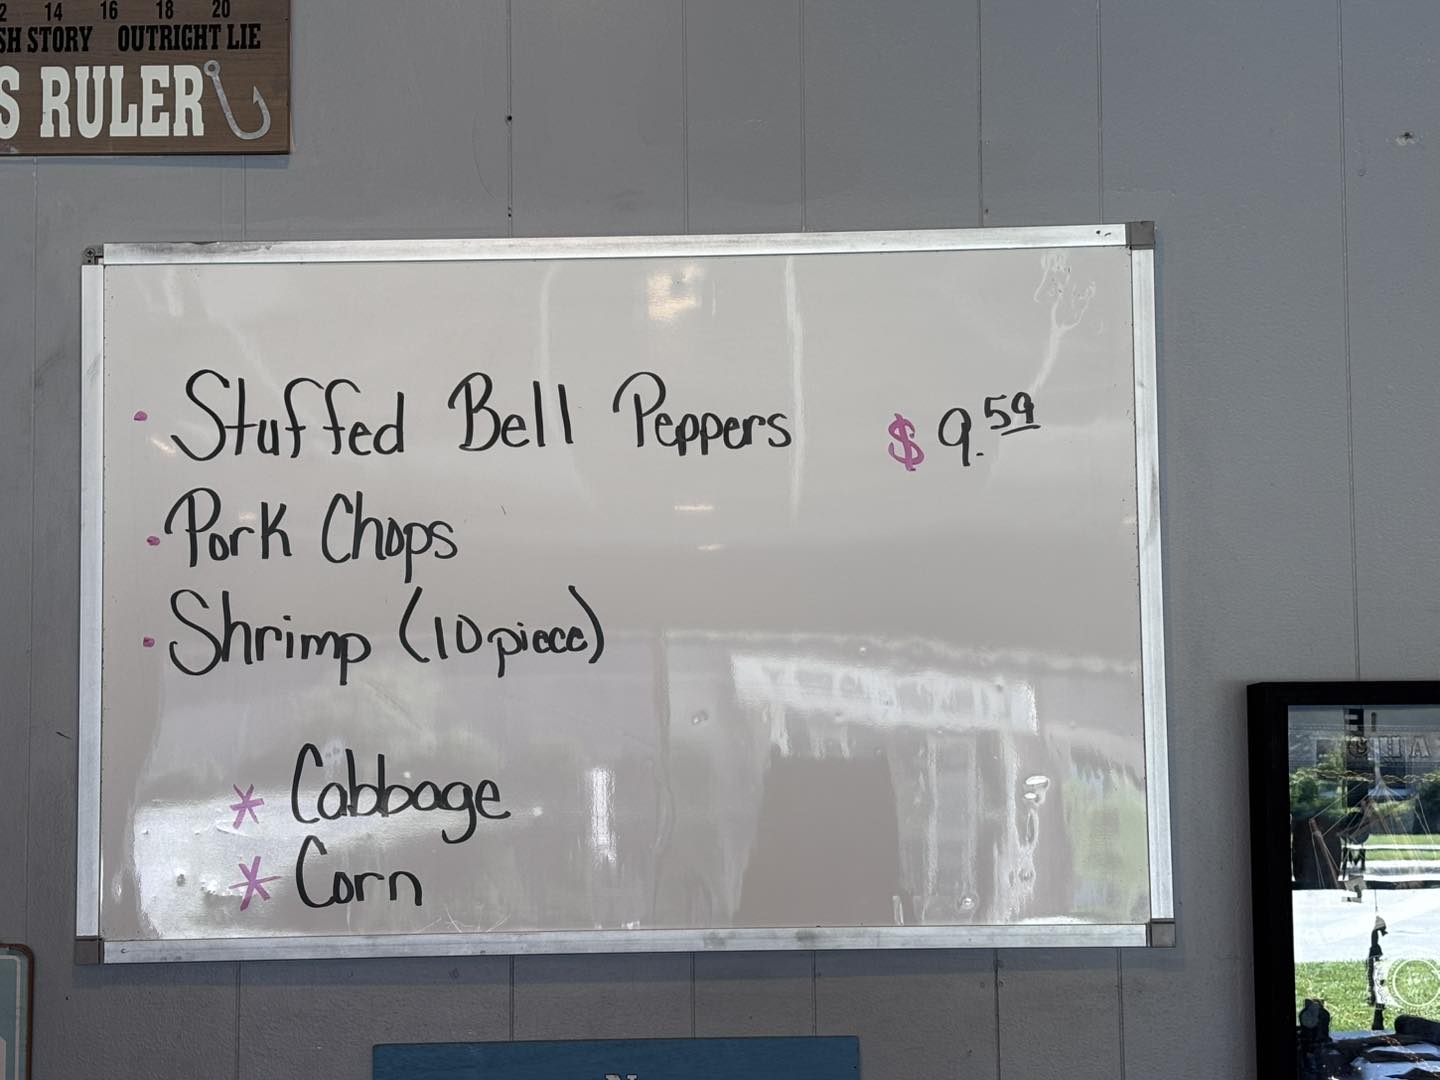 14 16 18 20
SH STORY OUTRIGHT LIE
S RULER
• Stuffed Bell Peppers $ 9.59
• Pork Chops
• Shrimp (10 piece)
* Cabbage
* Corn